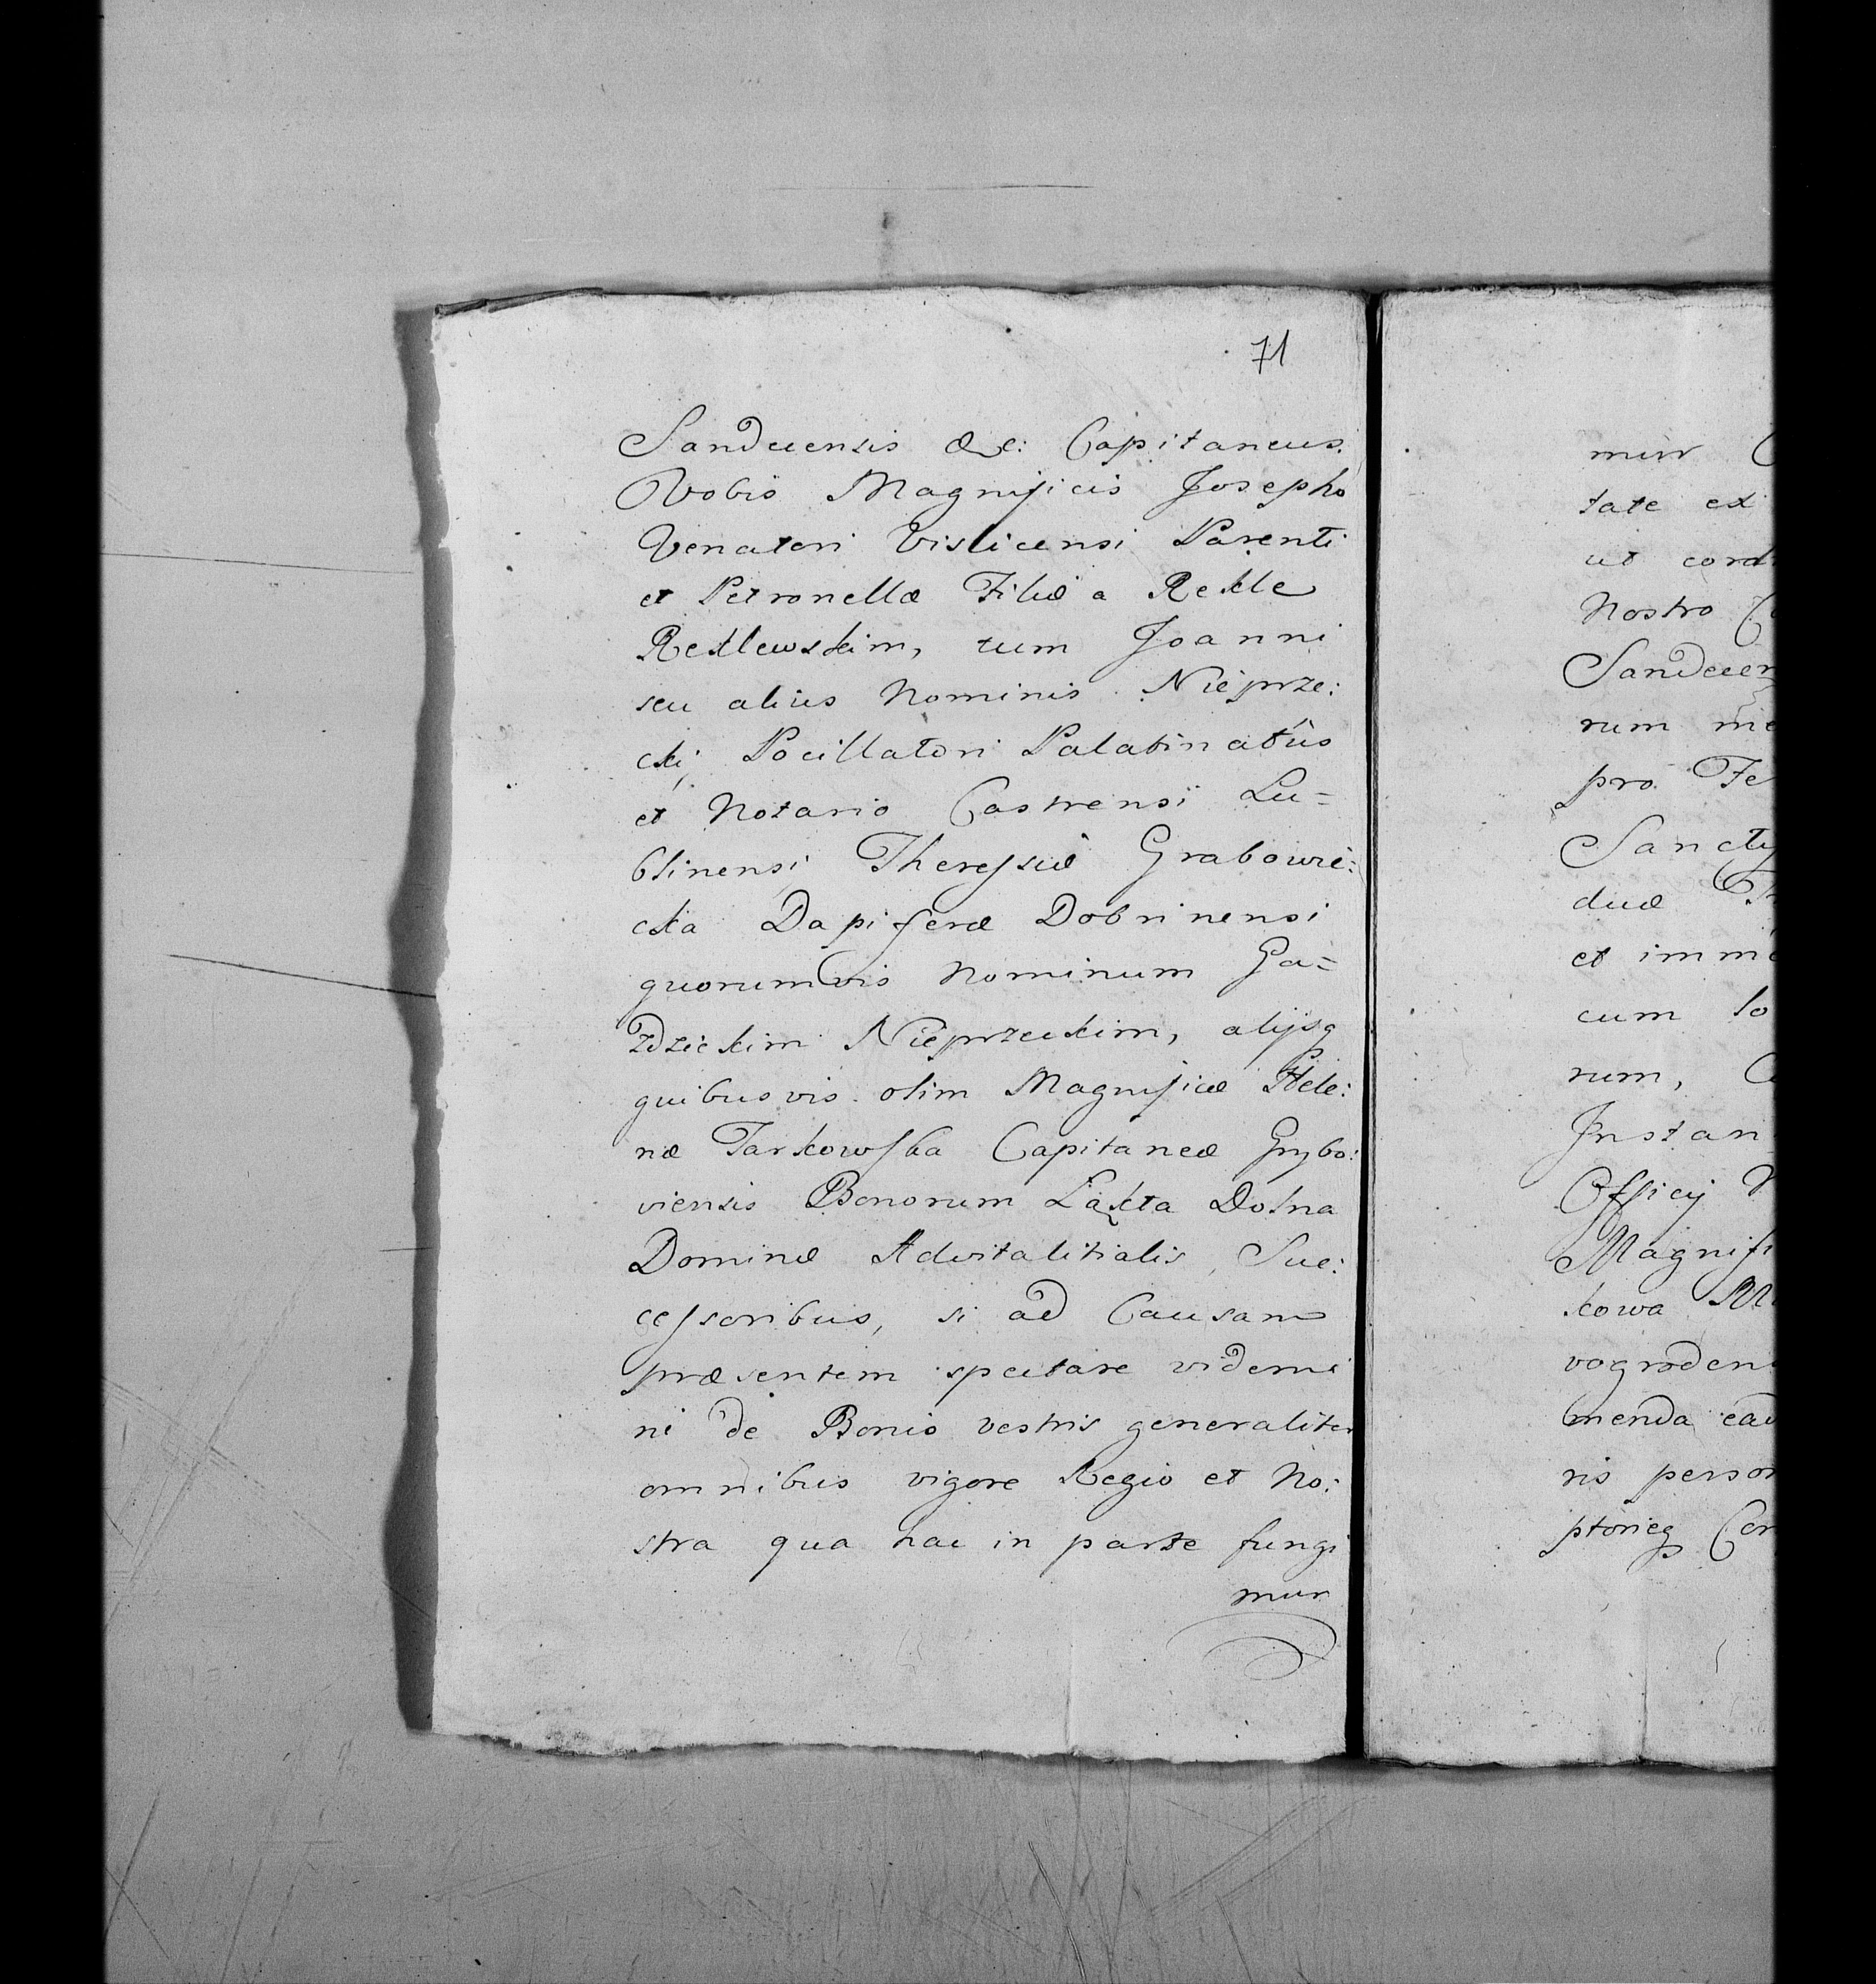 71
Sandecensis &c: Capitaneus.
Vobis Magnificis Josepho
Venatori Visliciensi Parenti
et Petronellæ Filiæ a Rekle
Reklewskim, tum Joanni
seu alius Nominis Nieprze:
cki, Pocillatori Palatinatûs
et Notario Castrensi Lu=
blinensi Theressiæ Grabowie:
cka Dapiferæ Dobrinensi
quorumvis Nominum Ga=
zdzickim Nieprzeckim, alijsq
quibusvis olim Magnificæ Hele:
næ Tarkowska Capitaneæ Grybo:
viensis Bonorum Łąkta Dolna
Dominæ Advitalitialis, Suc:
cessoribus, si ad Causam
præsentem spectare videmi
ni de Bonis vestris generaliter
omnibus vigore Regio et No:
stra qua hac in parte fungi
mur
min
tate ex
ut cord
Nostro
Sandecen
rum me
pro Fe
Sancty
duæ
et imme
cum lo
rum,
Instan
Officij
Magnifi
kowa
vogroden
menda ead
ris person
ptorieq